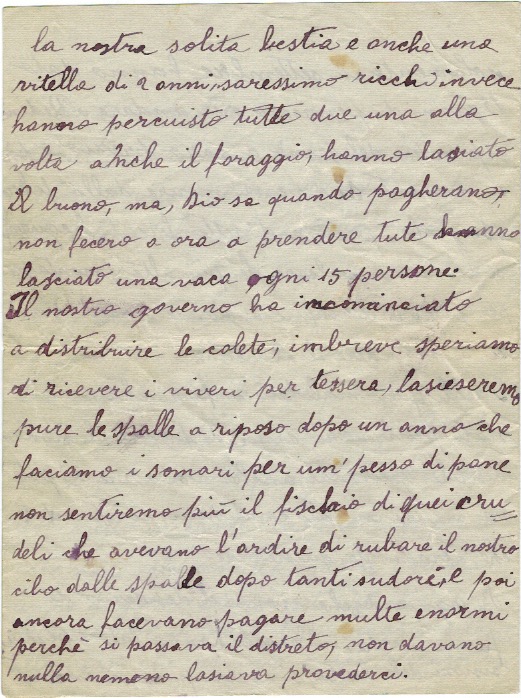 la nostra solita bestia e anche una
vitella di 2 anni, saressimo ricchi invece
hanno percuisto tutte due una alla
volta anche il foraggio, hanno lasciato
il buono, ma, Dio sa quando pagherano,
non fecero a ora a prendere tute hanno
lasciato una vaca ogni 15 persone.
Il nostro governo ha incominciato
a distribuire le colete, imbreve speriamo
di ricevere i viveri per tessera, lasieseremo
pure le spalle a riposo dopo un anno che
faciamo i somari per um pesso di pane
non sentiremo più il fischio di quei cru=
deli che avevano l'ardire di rubare il nostro
cibo dalle spalle dopo tanti sudore, e poi
ancora facevano pagare multe enormi
perchè si passava il distreto, non davano
nulla nemeno lasiava provederci.